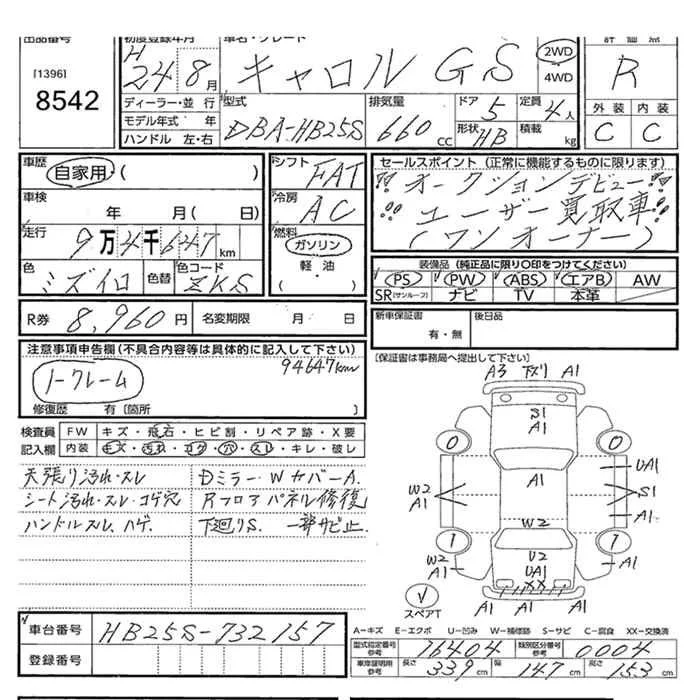 出品番号
[1396]
8542
初度登録年月
H 24 8月
ディーラー・並行
モデル年式 年
ハンドル 左・右
車名・グレード
キャロル GS
2WD
4WD
型式
DBA-HB25S
排気量
660 cc
ドア 5
形状 HB
定員 4人
積載 kg
評価点
R
外装 内装
C C
車歴
自家用・( )
車検
年 月( 日)
走行
9万4千647km
色
ミズイロ
色替
色コード
ZKS
シフト
FAT
冷房
AC
燃料
ガソリン
軽・油
( )
セールスポイント (正常に機能するものに限ります)
!! オークションデビュー !!
!! ユーザー買取車 !!
(ワンオーナー)
装備品 (純正品に限り○印をつけてください)
PS PW ABS エアB AW
SR(サンルーフ) ナビ TV 本革
R券 8,960円
名変期限 月 日
新車保証書
有・無
後日品
[保証書は事務局へ提出して下さい]
注意事項申告欄 (不具合内容等は具体的に記入して下さい)
94647km
ノークレーム
修復歴 有 [箇所 ]
検査員 FW キズ・飛石・ヒビ割・リペア跡・X要
記入欄 内装 キズ・汚れ・コゲ・穴・スレ・キレ・破レ
天張り汚れ・スレ
シート汚れ・スレ・コゲ穴
ハンドルスレ、ハゲ.
Dミラー・WカバーA.
Rフロアパネル修復
下廻りS. 一部サビ止.
A3 下ズリ A1
A1 A1
S1
A1
0 0
A1
UA1
W2
A1
S1
A1
W2
1 1
U2
UA1
XX
W2
A1
A1
A1 A1
スペアT
車台番号 HB25S-732157
登録番号
A−キズ E−エクボ U−凹み W−補修跡 S−サビ C−腐食 XX−交換済
型式指定番号 参考 16404
類別区分番号 参考 0004
車庫証明用 参考 長さ 339cm 幅 147cm 高さ 153cm